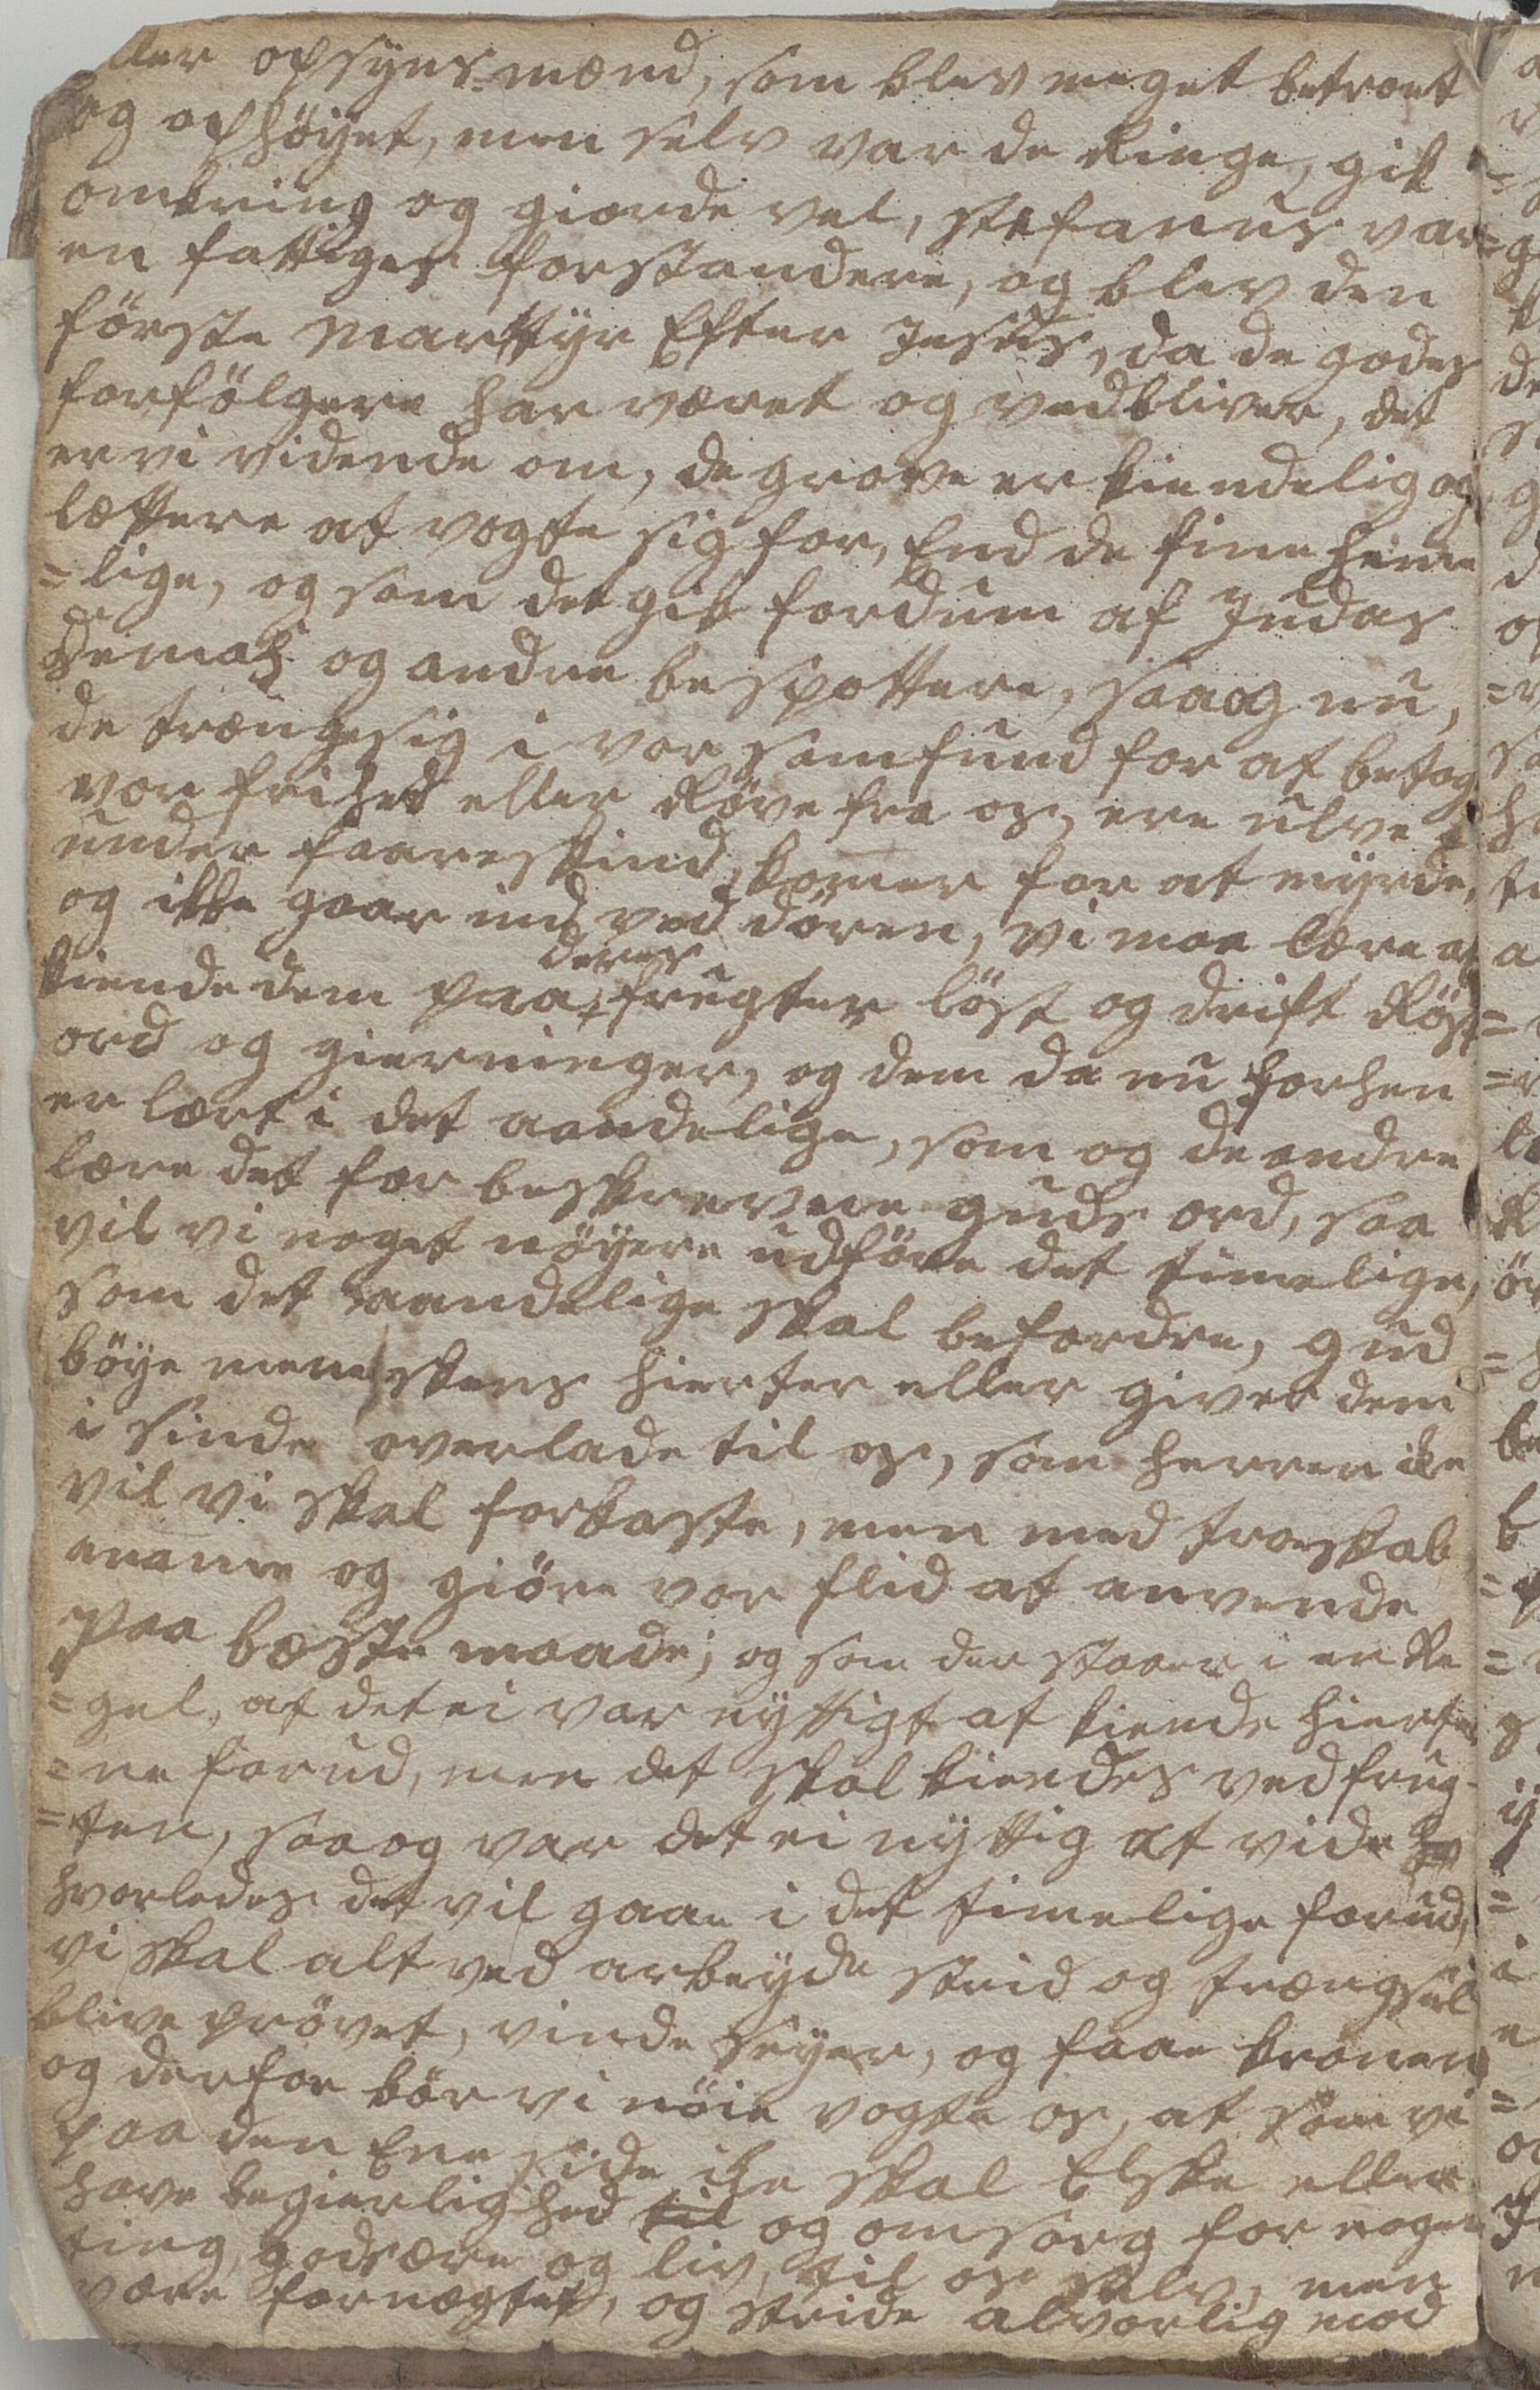 ller opsyns-mænd, som blev meget betroet
og ophöyet, men selv var de Ringe, gik
omkring og giorde vel, stefanus var
en fattiges forstandere, og blev den
förste Marttyr Efter Jesus, da de godes
forfölgere har været og vedbliver, det
er vi vidende om, de grove er kiendelig og
lættere at vogte sig for, End de fine heme
=lige, og som det gik fordum af Judas
Demas og andre bespottere, saa og nu,
de trængesig i vor samfund for at betage
vor frihed eller Röve fra os, ere ulve
under faareskind, komer for at myrde,
og ikke gaar ind ved dören, vi maa lære at
kiende dem paa deres frugter löst og drift Röst
ord og gierninger, og dem da nu forhen
er lært i det aandelige, som og de andre
lære det for beskrevene guds ord, saa
vil vi noget nöyere udföre det timelige,
som det aandelige skal befordre, gud
böye meneskens hierter eller giver dem
i sinde overlade til os, som herren ike
vil vi skal forkaste, men med troeskab
aname og giöre vor flid at anvende
paa bæste maade; og som der staaer i en Re
=gel, at det ei var nyttigt at kiende hierter
=ne forud, men det skal kiendes ved frug-
=ten, saa og var det ei nyttig at vide
hvorledes det vil gaae i det timelige forud,
vi skal alt ved arbeyde strid og trængsel
blive prövet, vinde Seyer, og faae kronen
og derfor bör vi nöie vogte os, at som vi
paa den Ene side ike skal Elske eller
have begierlighed til og omsorg for nogen
ting, gods ære og liv, til os selv, men
være fornægtet, og stride alvorlig mod